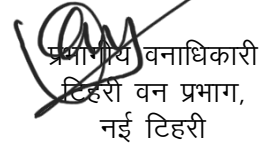 प्रभागीय वनाधिकारी
टिहरी वन प्रभाग,
नई टिहरी